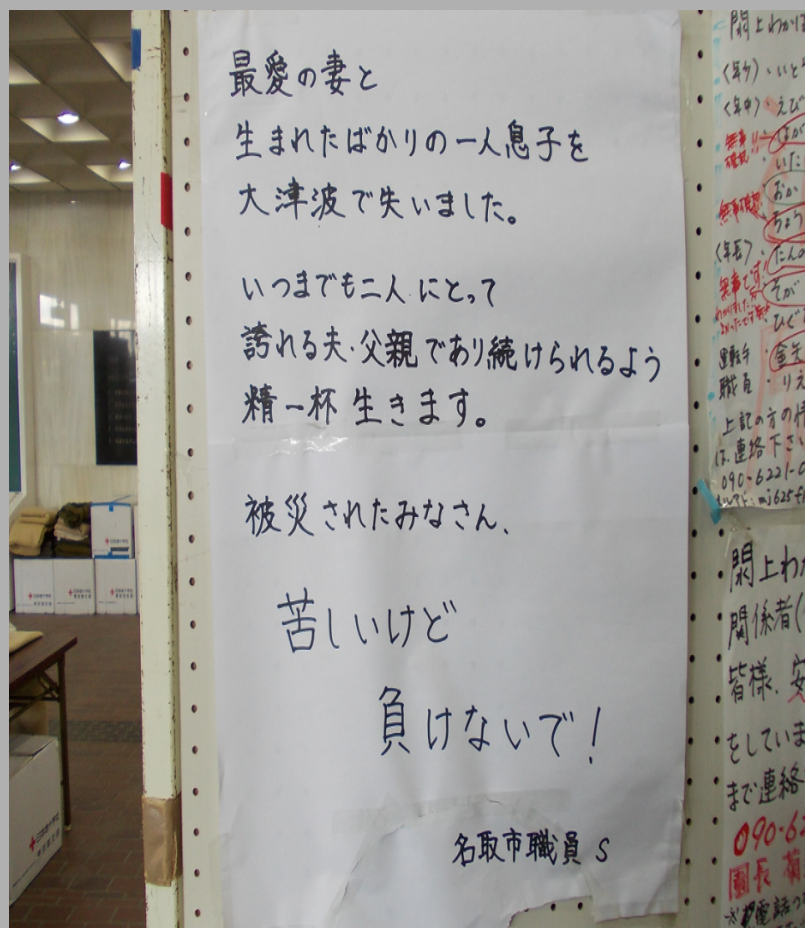 最愛の妻と
生まれたばかりの一人息子を
大津波で失いました。
いつまでも二人にとって
誇れる夫・父親であり続けられるよう
精一杯生きます。
被災されたみなさん、
苦しいけど
負けないで!
名取市職員 S
閖上わかば
〈年少〉・いと
〈年中〉・えび
無事
確認
・いた
おか
無事確認
ちょう
〈年長〉・たんの
無事です
そが
ひぐ
運転手
職員・りえ
上記の方の情
は、連絡下さい
090-6221-0
閖上わか
関係者(
皆様、安
をしていま
まで連絡
090-62
園長